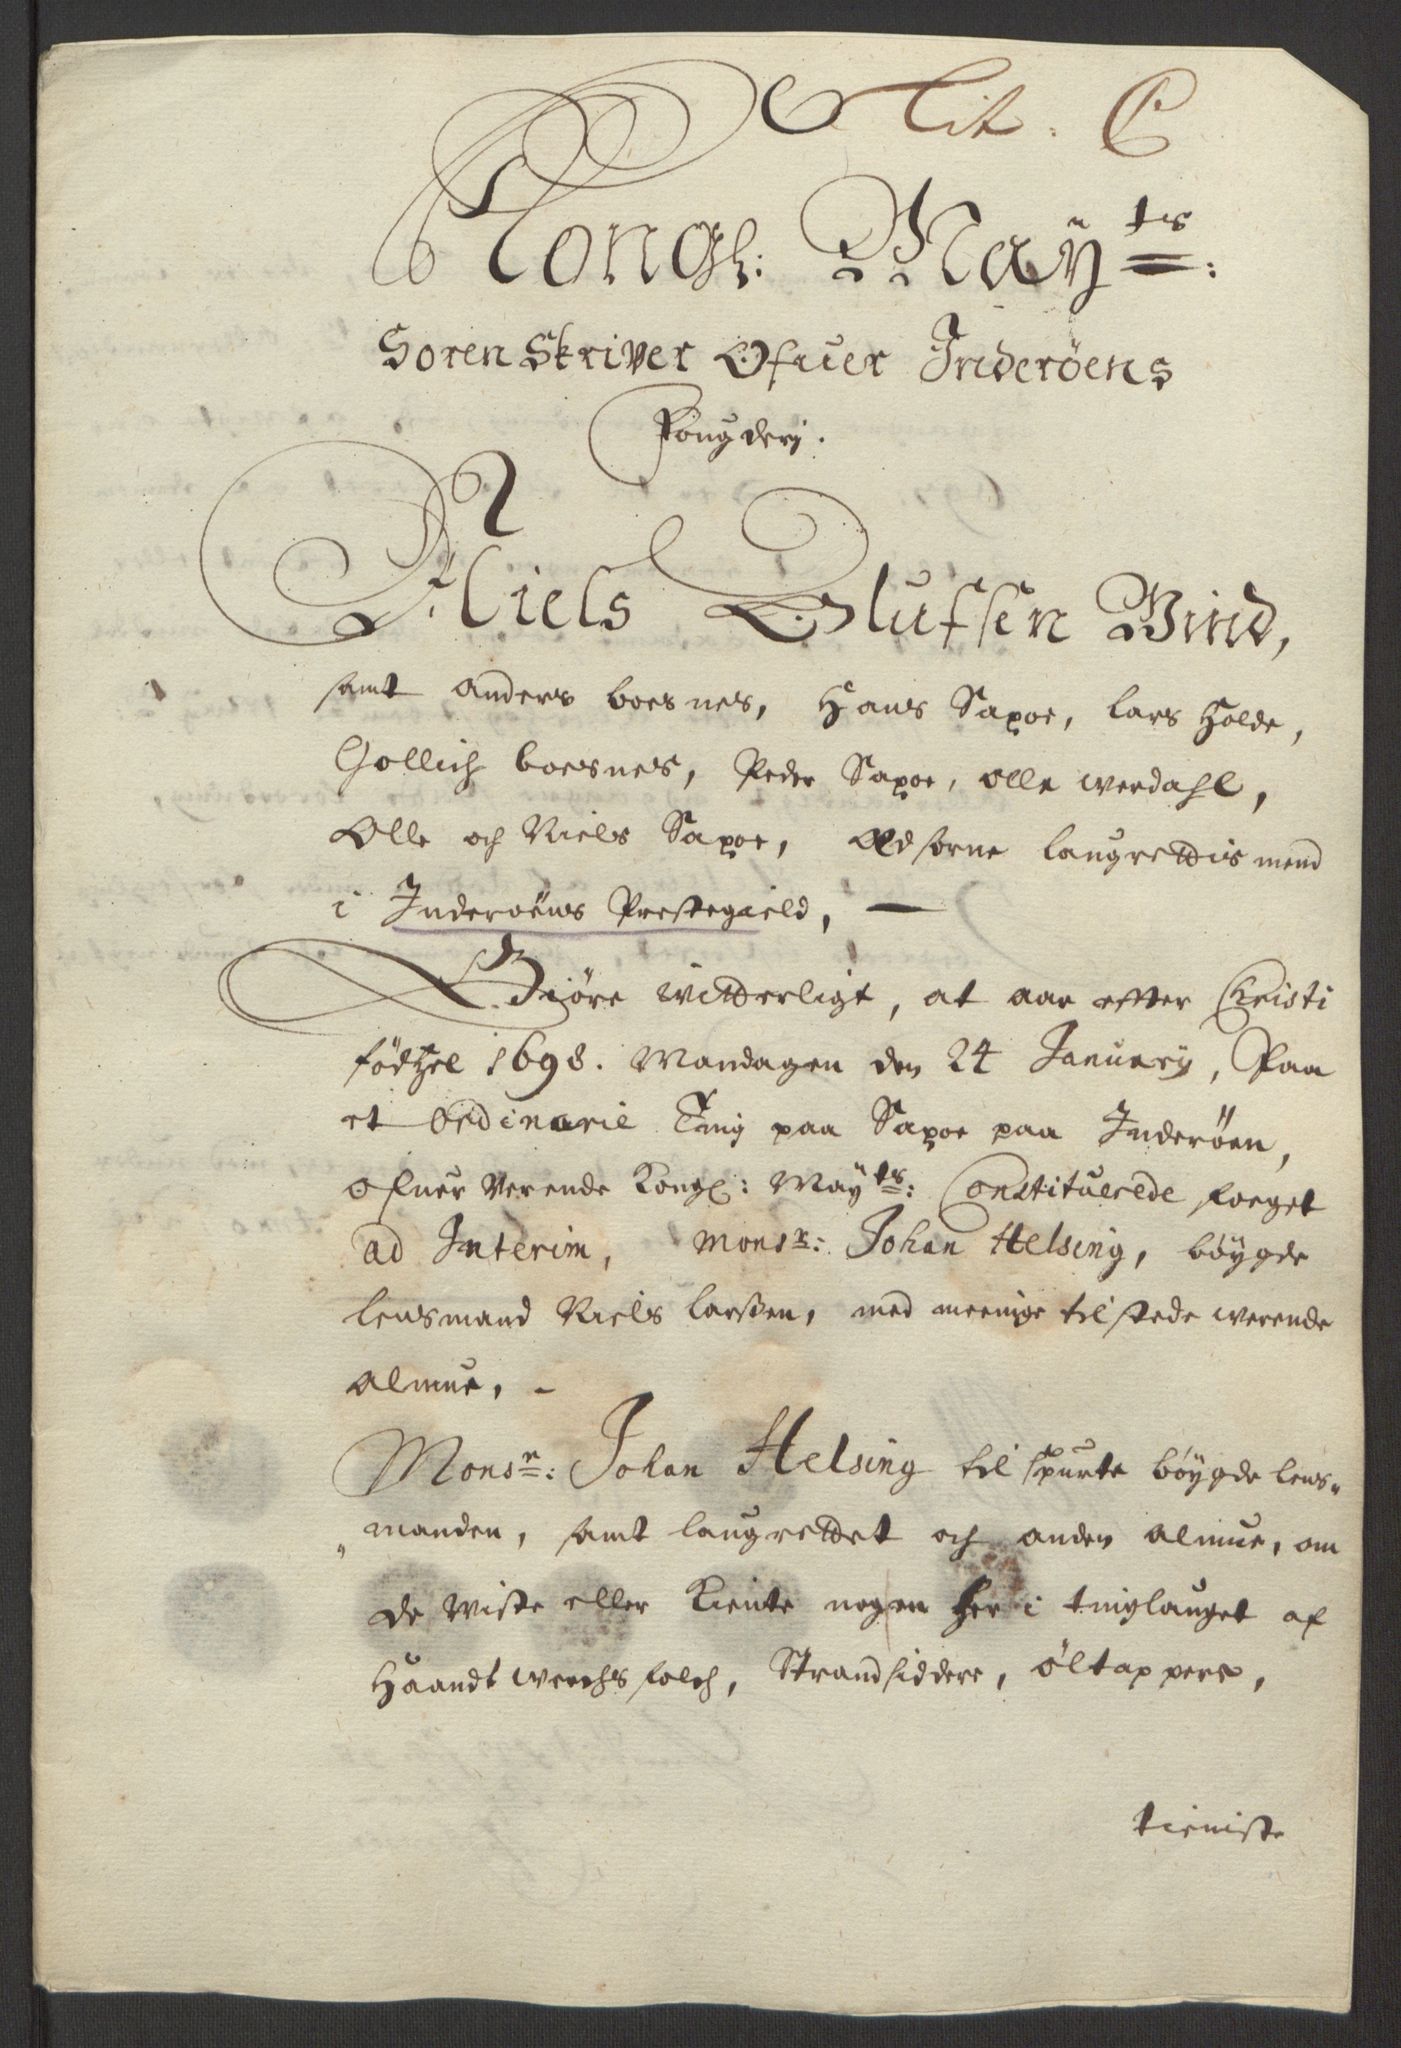 Lit: C
Kongl: Maÿ^ts:
Soren Skriver Ofuer Inderöens
Fougderj.
Niels Olufsen Wind,
samt Anders boesnes, Hans Saxoe, Lars Holde,
Gollich boesnes, Peder Saxoe, Olle werdahl,
Olle och Niels Saxoe, Edsorne laugrettismend
i Inderöens Prestegield,
Giöre witterligt, at aar efter Christi
födtzel 1698. Mandagen den 24 Januarij, Paa
et Ordinarie Ting paa Saxoe paa Inderöen,
ofuer Verende Kongl: Maÿ^ts: Constituerede foeget
ad Interim, Mons^r: Johan Helsing, böygde
lensmand Niels larssen, med meenige tilstede werende
almue,
Mons^r: Johan Helsing tilspurte böygde lens-
manden, samt laugrettet och anden almue, om
de wiste eller kiente nogen her i tinglauget af
Haandtwerchsfolch, Strandsiddere, öltappere,
tieniste